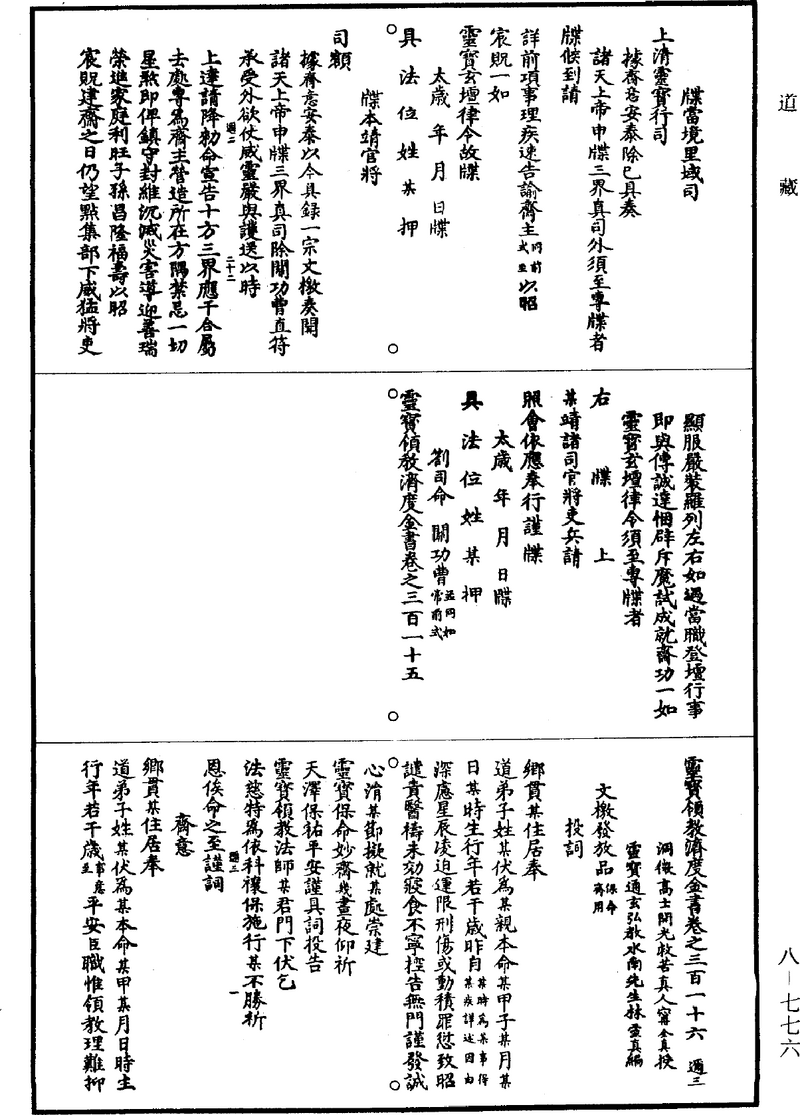 道藏
牒當境里域司
上清靈寶行司
據齋意安奉除已具奏
諸天上帝申牒三界真司外須至專牒者
牒候到請
詳前項事理疾速告諭齋主同前式至以昭
宸貺一如
靈寶玄壇律令故牒
太歲年月日牒
具法位姓某押
牒本靖官將
司額
據齋意安奉以今具錄一宗文檄奏聞
諸天上帝申牒三界真司除關功曹直符
承受外欲仗威靈嚴與護送以時
週二
二十二
上達請降勑命宣告十方三界應干合屬
去處專為齋主營造所在方隅禁忌一切
星煞即俾鎮守封維沉滅災害導迎善瑞
榮進家庭利旺子孫昌隆福壽以昭
宸貺建齋之日仍望點集部下威猛將吏
顯服嚴裝羅列左右如遇當職登壇行事
即與傳誠達悃辟斥魔試成就齋功一如
靈寶玄壇律令須至專牒者
右牒上
某靖諸司官將吏兵請
照會依應奉行謹牒
太歲年月日牒
具法位姓某押
劉司命關功曹並同如常前式
靈寶領教濟度金書卷之三百一十五
靈寶領教濟度金書卷之三百一十六 週三
洞微高士開光救苦真人甯全真授
靈寶通玄弘教水南先生林靈真編
文檄發放品保命齋用
投詞
鄉貫某住居奉
道弟子姓某伏為某親本命某甲子某月某
日某時生行年若干歲昨自某時為某事得某疾詳述因由
深應星辰凌迫運限刑傷或動積罪愆致昭
譴責醫禱未効寢食不寧控告無門謹發誠
心涓某節擬就某處崇建
靈寶保命妙齋幾晝夜仰祈
天澤保祐平安謹具詞投告
靈寶領教法師某君門下伏乞
法慈特為依科禳保施行某不勝祈
週三
一
恩俟命之至謹詞
齋意
鄉貫某住居奉
道弟子姓某伏為某本命某甲某月日時生
行年若干歲事意至平安臣職惟領教理難抑
八－七七六